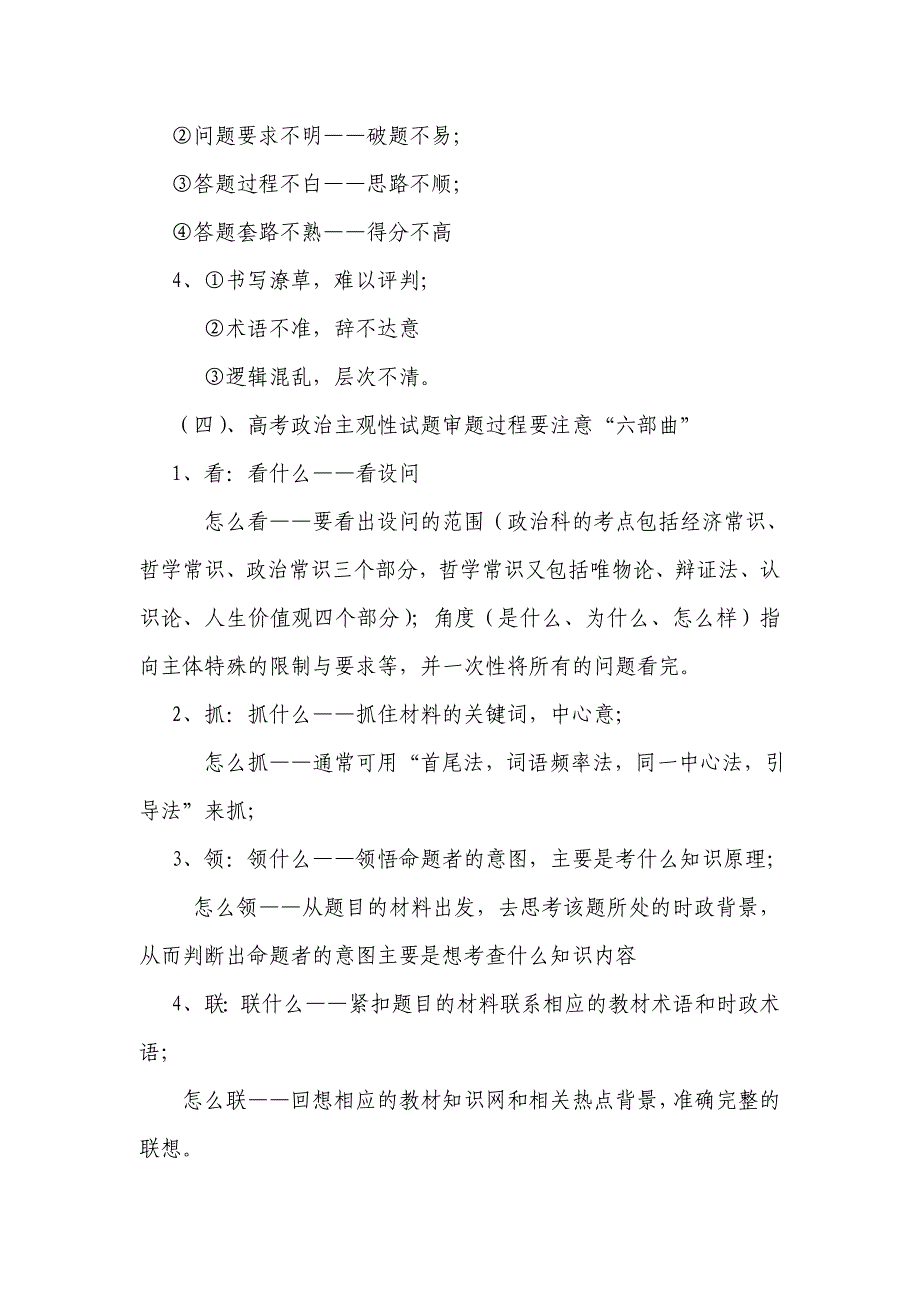 ②问题要求不明——破题不易；
③答题过程不白——思路不顺；
④答题套路不熟——得分不高
4、①书写潦草，难以评判；
②术语不准，辞不达意
③逻辑混乱，层次不清。
（四）、高考政治主观性试题审题过程要注意“六部曲”
1、看：看什么——看设问
怎么看——要看出设问的范围（政治科的考点包括经济常识、
哲学常识、政治常识三个部分，哲学常识又包括唯物论、辩证法、认
识论、人生价值观四个部分）；角度（是什么、为什么、怎么样）指
向主体特殊的限制与要求等，并一次性将所有的问题看完。
2、抓：抓什么——抓住材料的关键词，中心意；
怎么抓——通常可用“首尾法，词语频率法，同一中心法，引
导法”来抓；
3、领：领什么——领悟命题者的意图，主要是考什么知识原理；
怎么领——从题目的材料出发，去思考该题所处的时政背景，
从而判断出命题者的意图主要是想考查什么知识内容
4、联：联什么——紧扣题目的材料联系相应的教材术语和时政术
语；
怎么联——回想相应的教材知识网和相关热点背景，准确完整的
联想。